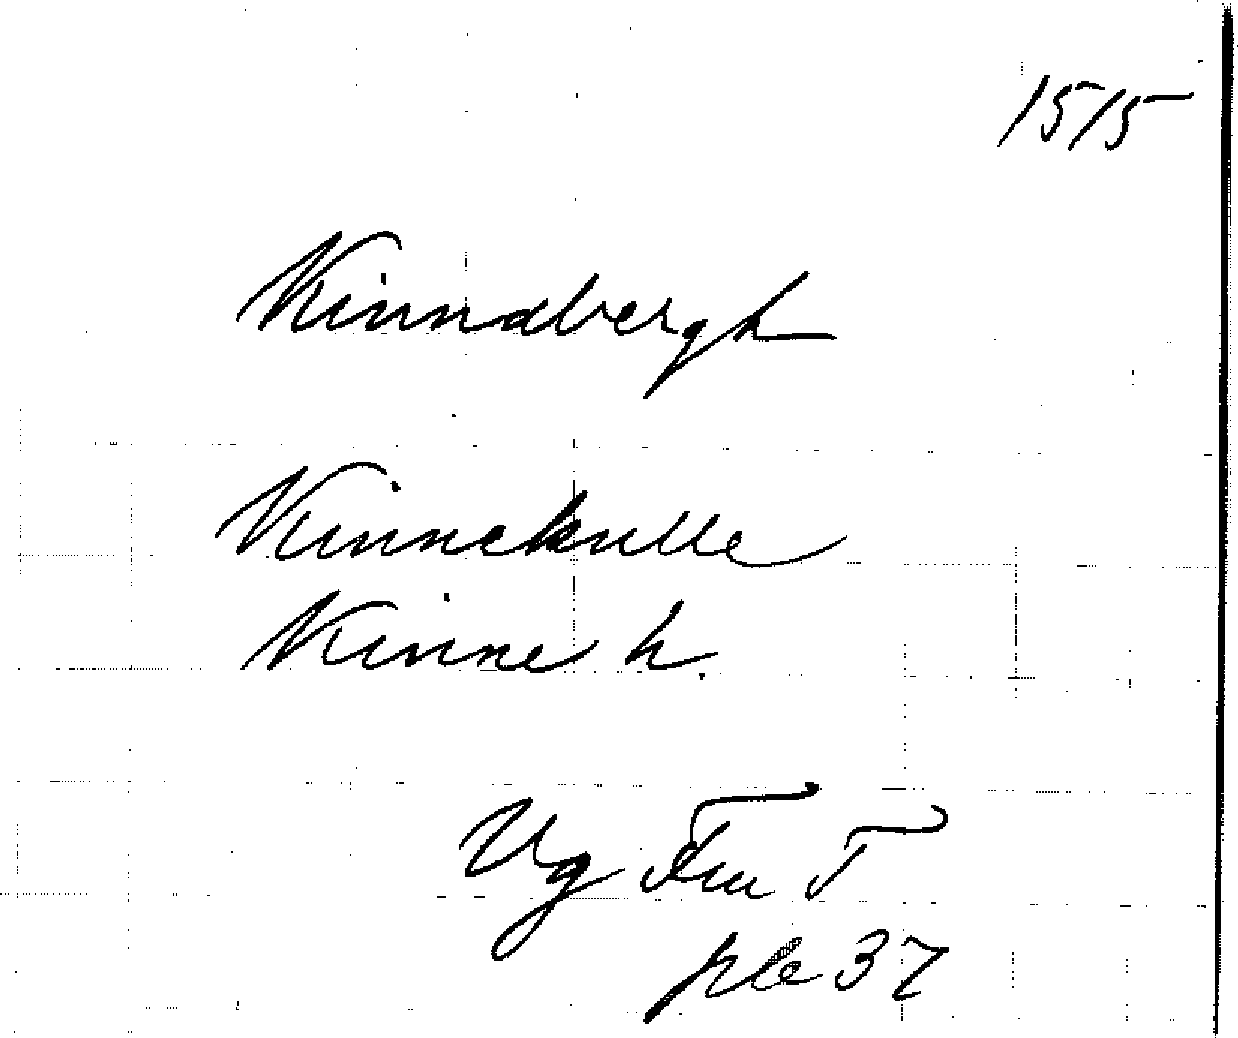 1515
Kinnabergh
Kinnekulle
Kinne h.
Vg Fru T
ple 37